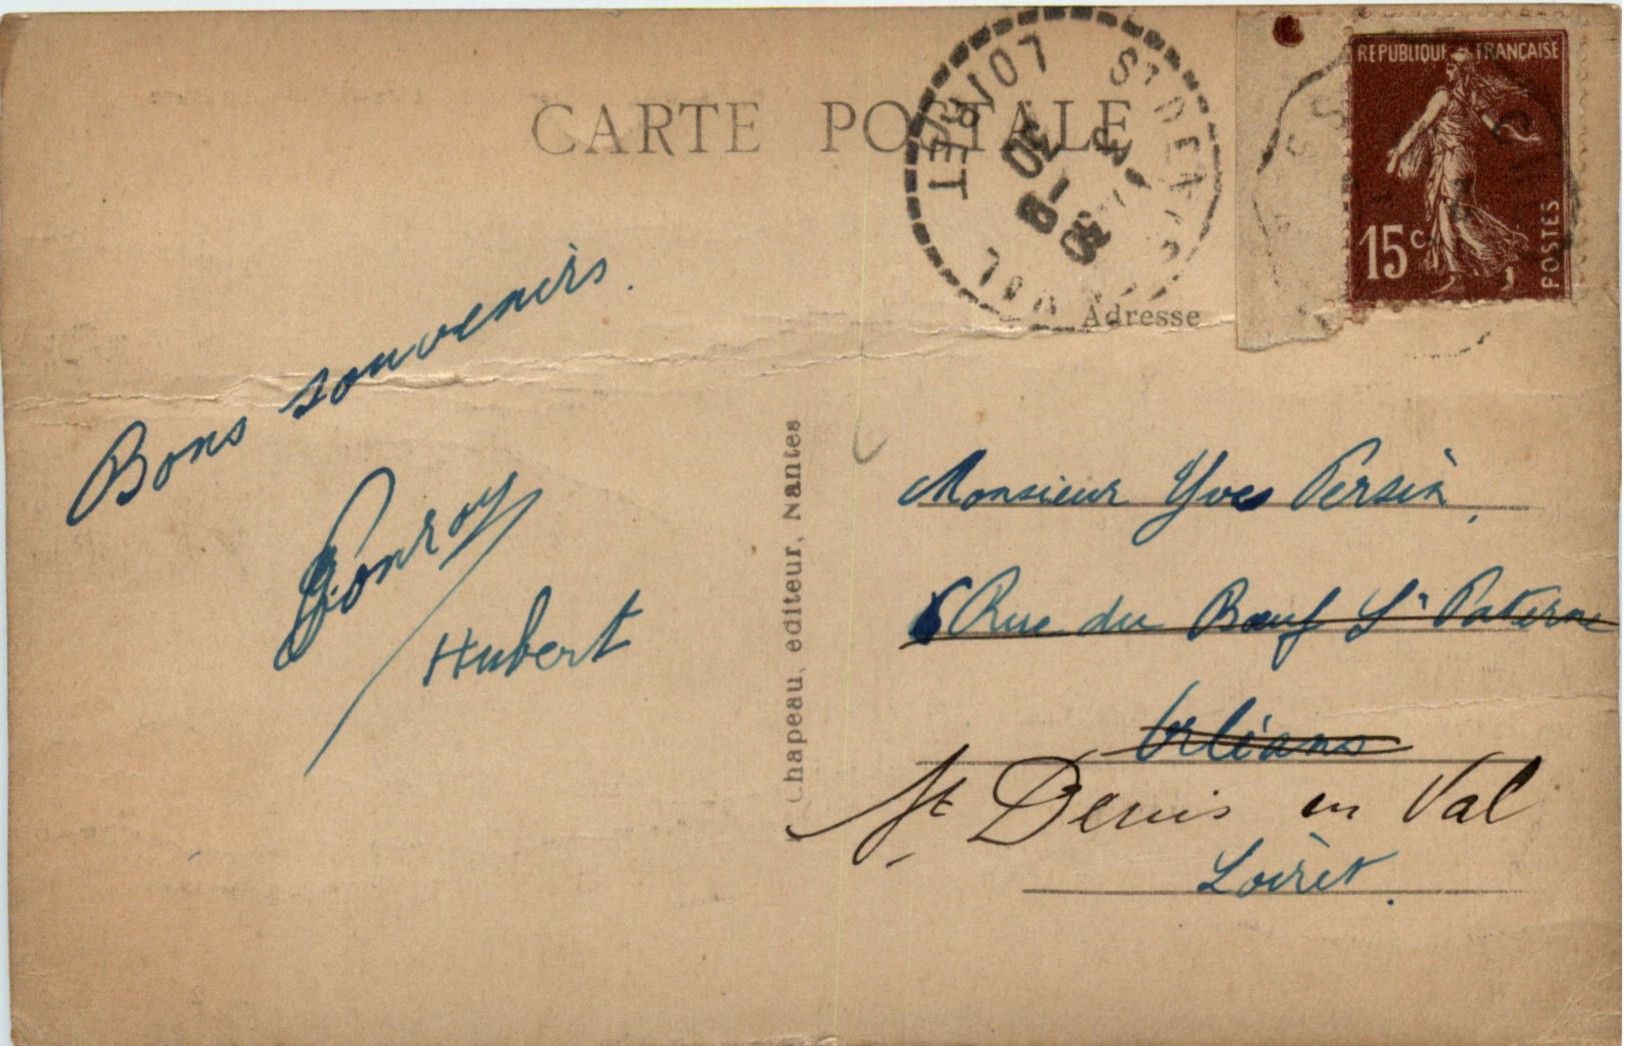 CARTE POSTALE
REPUBLIQUE FRANÇAISE
15c
POSTES
ST DENIS
VAL
LOIRET
Adresse
Bons souvenirs.
Hubert
Chapeau, editeur, Nantes
Monsieur Yves Persin,
6 Rue du Bœuf St Paterne
Orléans
St Denis en Val
Loiret.